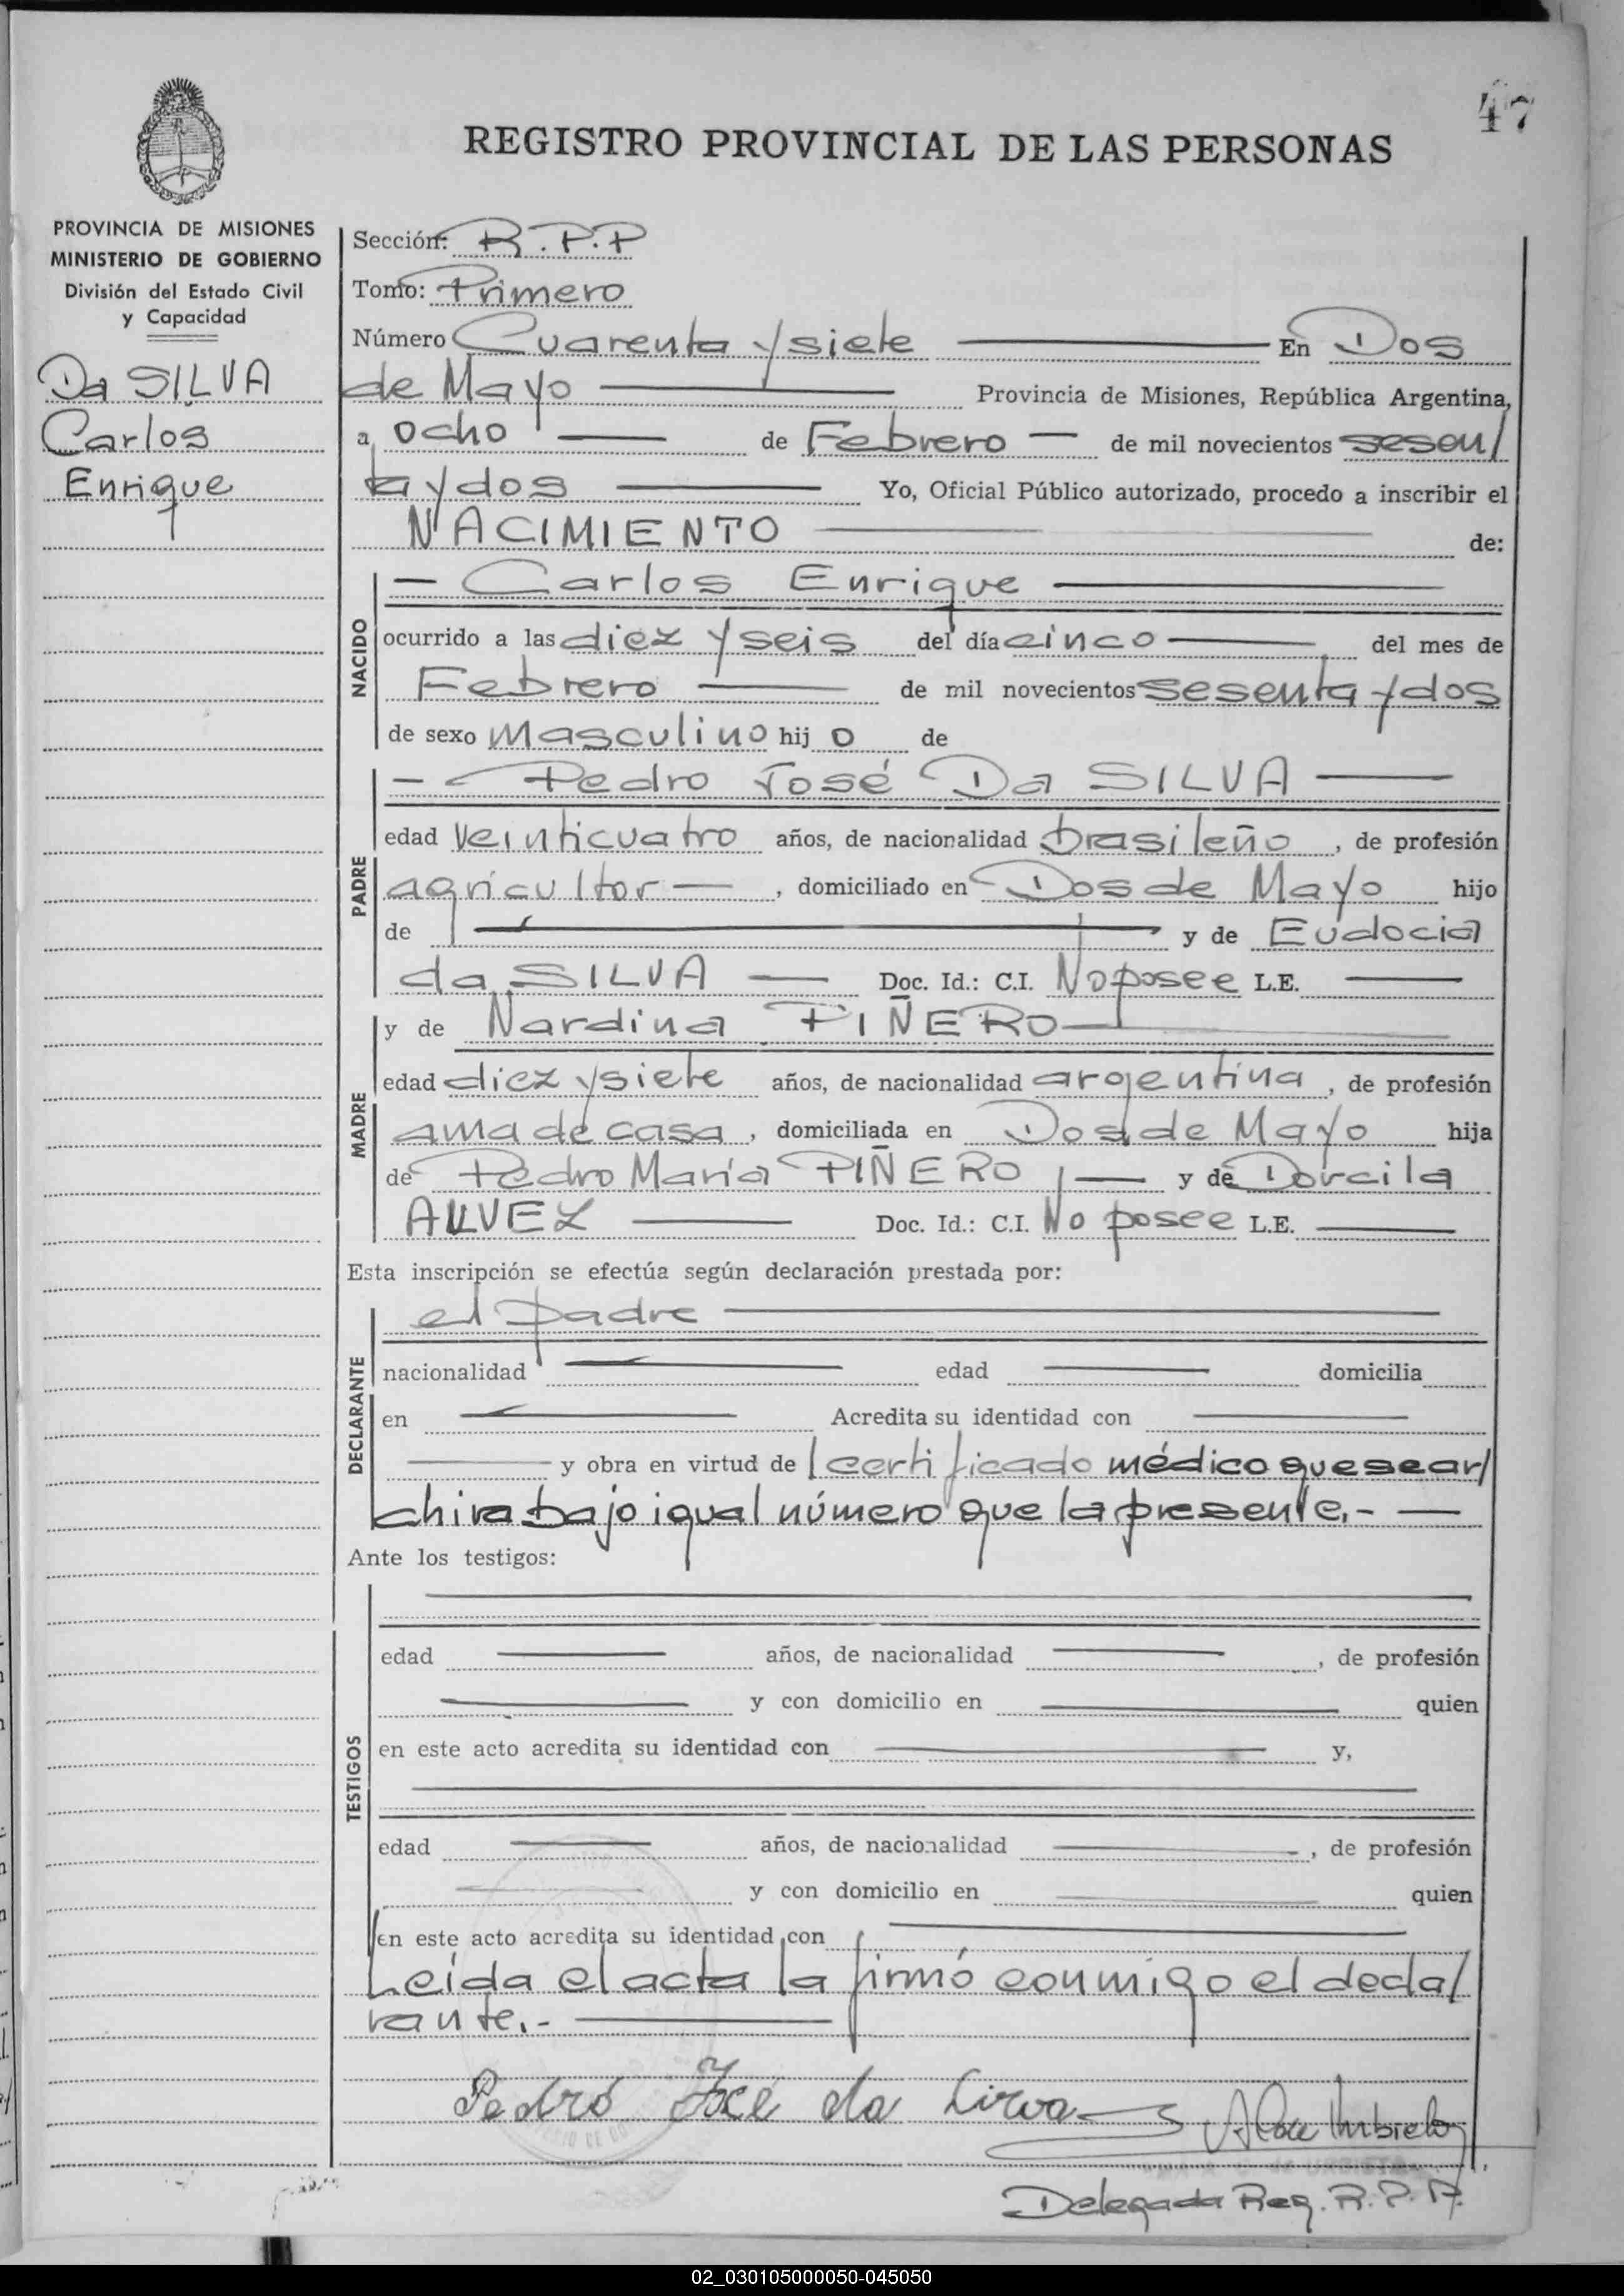 47
REGISTRO PROVINCIAL DE LAS PERSONAS
PROVINCIA DE MISIONES
MINISTERIO DE GOBIERNO
División del Estado Civil
y Capacidad
Da SILVA
Carlos
Enrique
Sección: R.P.P
Tomo: Primero
Número Cuarenta y siete En Dos
de Mayo Provincia de Misiones, República Argentina,
a ocho de Febrero de mil novecientos sesen/
ta y dos Yo, Oficial Público autorizado, procedo a inscribir el
NACIMIENTO de:
NACIDO
Carlos Enrique
ocurrido a las diez y seis del día cinco del mes de
Febrero de mil novecientos sesenta y dos
de sexo Masculino hijo de
PADRE
Pedro José Da SILVA
edad veinticuatro años, de nacionalidad brasileño, de profesión
agricultor, domiciliado en Dos de Mayo hijo
de y de Eudocia
da SILVA Doc. Id.: C.I. No posee L.E.
MADRE
y de Nardina PIÑERO
edad diez y siete años, de nacionalidad argentina, de profesión
ama de casa, domiciliada en Dos de Mayo hija
de Pedro María PIÑERO y de Dorcila
ALVEZ Doc. Id.: C.I. No posee L.E.
Esta inscripción se efectúa según declaración prestada por:
DECLARANTE
el padre
nacionalidad edad domicilia
en Acredita su identidad con
y obra en virtud de certificado médico que se ar/
chiva bajo igual número que la presente.-
Ante los testigos:
TESTIGOS
edad años, de nacionalidad , de profesión
y con domicilio en quien
en este acto acredita su identidad con y,
edad años, de nacionalidad , de profesión
y con domicilio en quien
en este acto acredita su identidad con
Leída el acta la firmó conmigo el decla/
rante.-
Pedro José da Sirva
Delegada Reg. R.P.P.
02_030105000050-045050